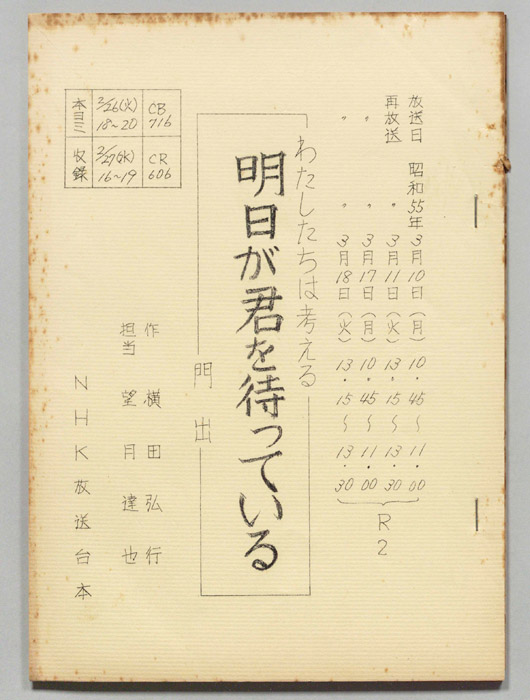 放送日 昭和55年3月10日(月)10・45〜11・00
再放送 〃 3月11日(火)13・15〜13・30
〃 〃 3月17日(月)10・45〜11・00
〃 〃 3月18日(火)13・15〜13・30
R2
わたしたちは考える
明日が君を待っている
門出
作 横田弘行
担当 望月達也
NHK放送台本
本ヨミ 2/26(火) 18~20 CB 716
収録 2/27(水) 16~19 CR 606